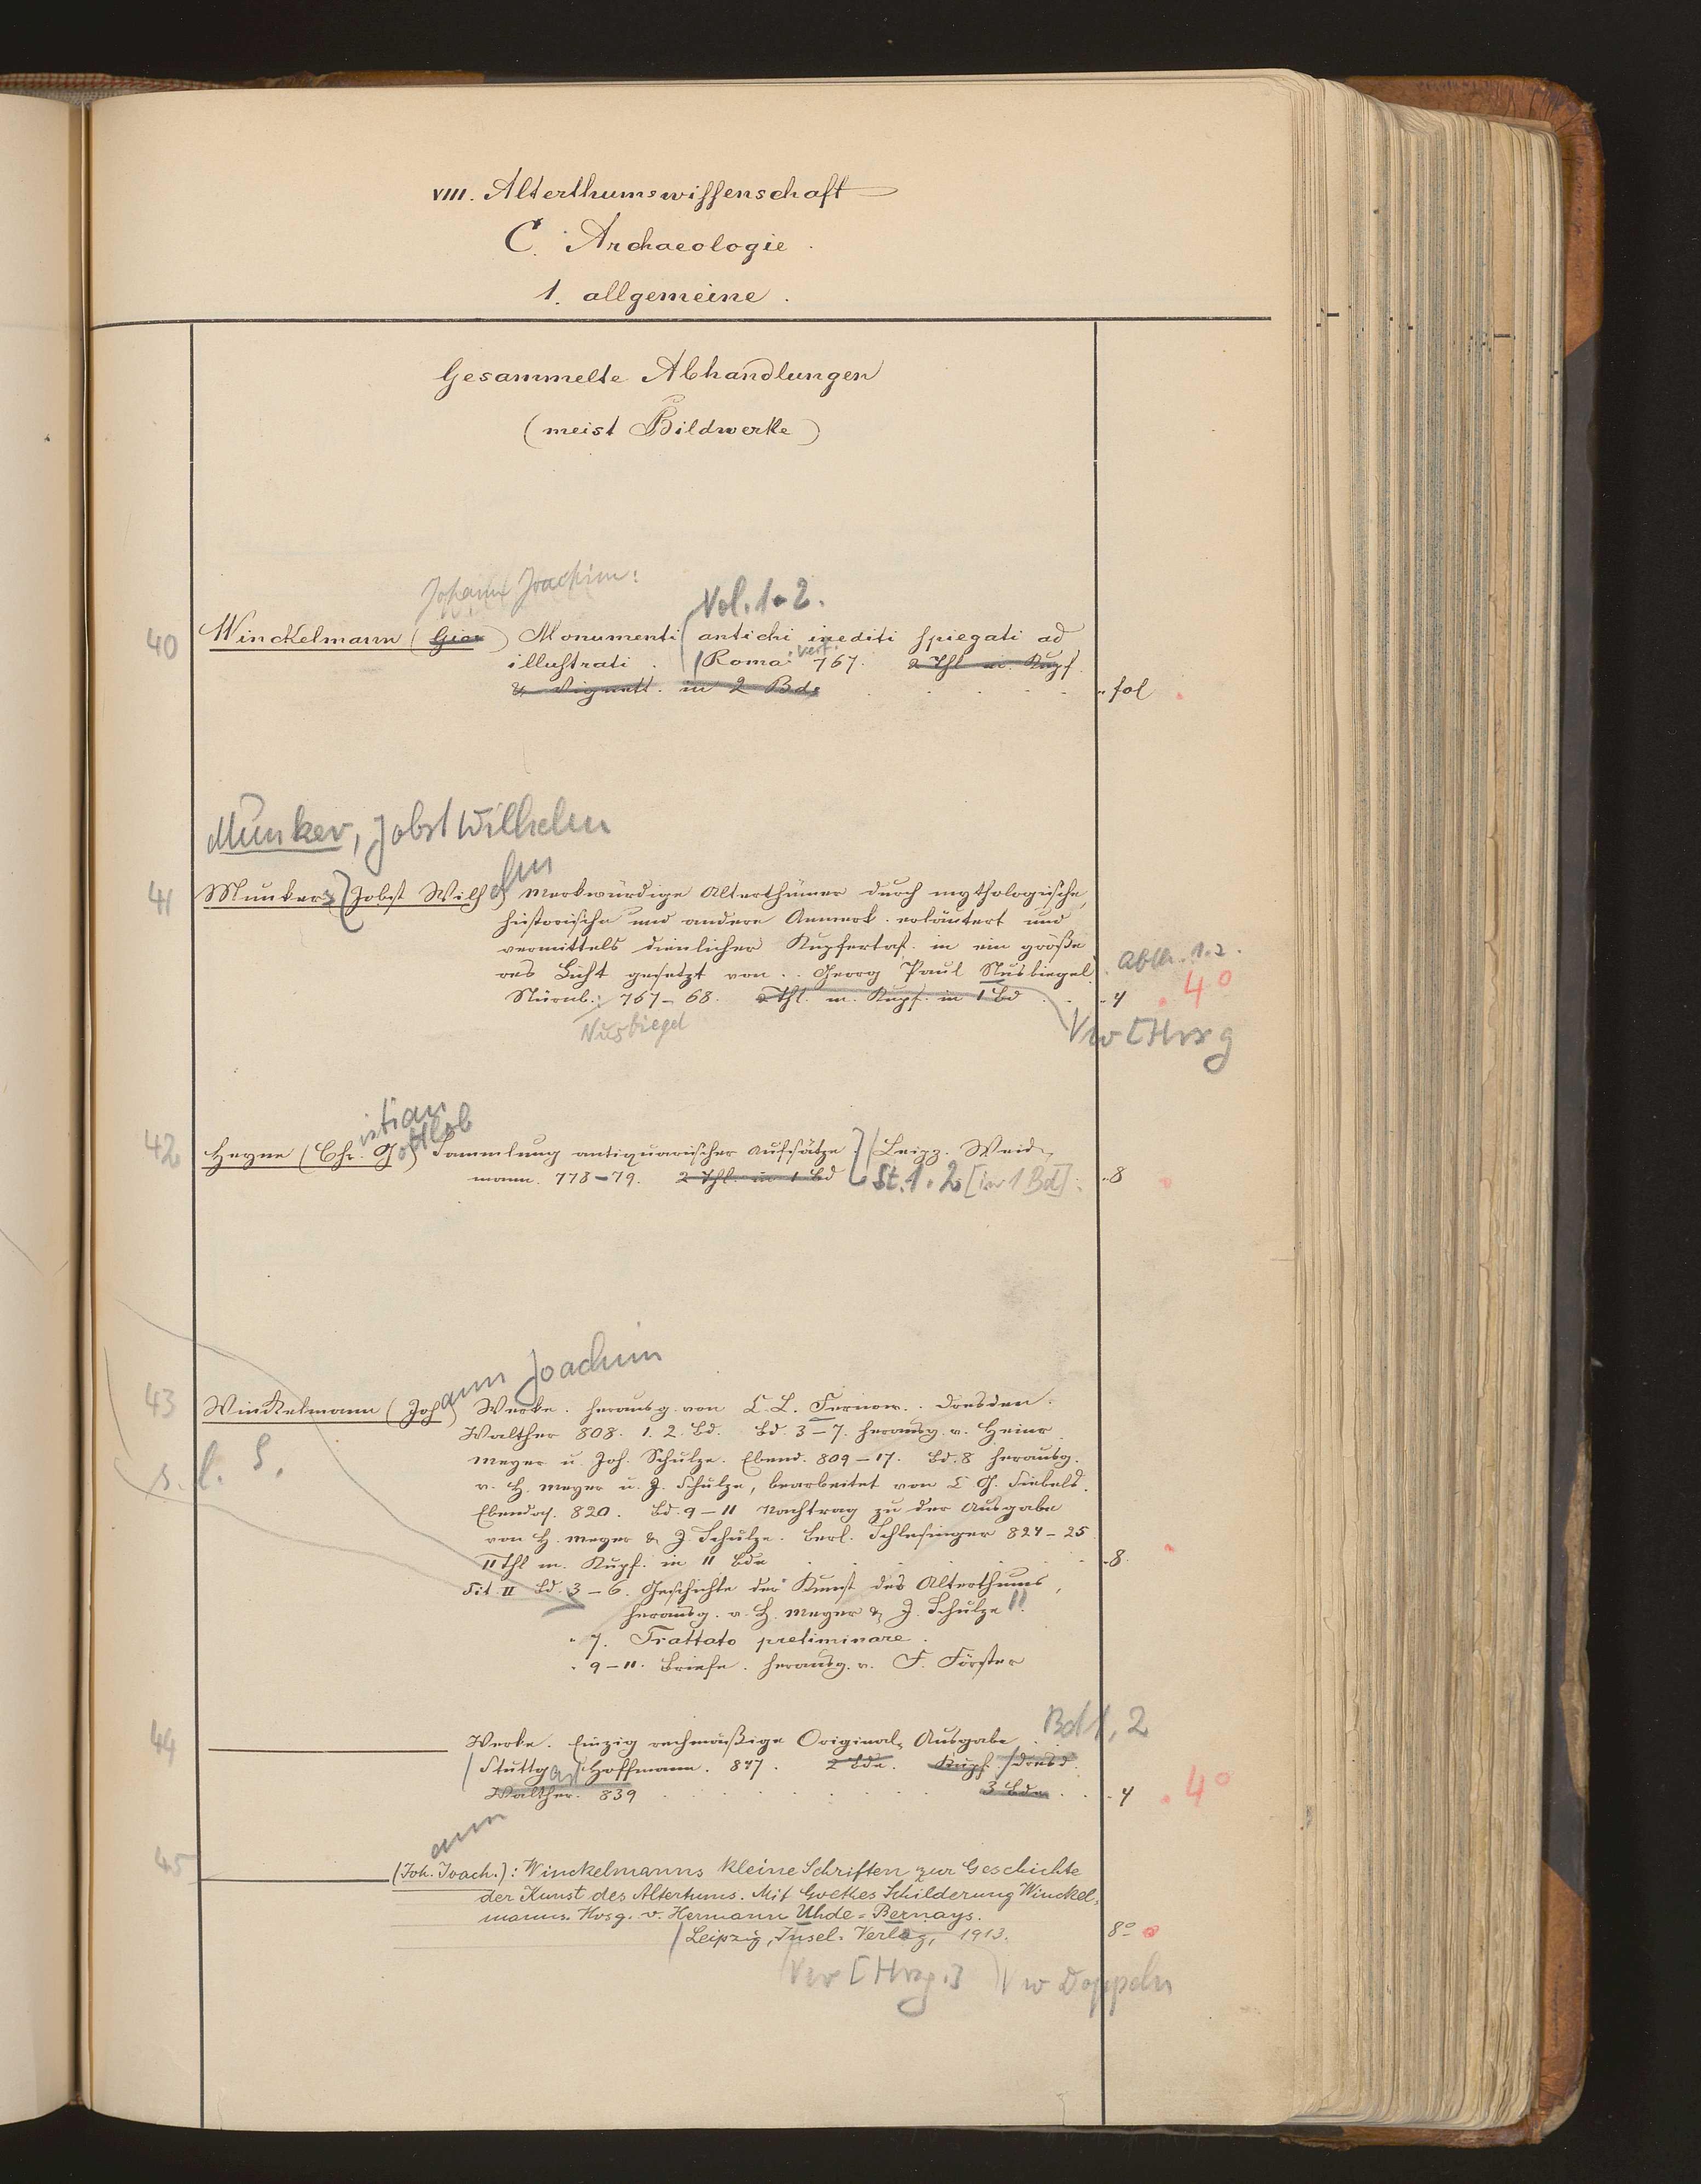 VIII. Alterthumswissenschaft
C. Archaeologie.
1. allgemeine.
Gesammelte Abhandlungen
(meist Bildwerke)
Johann Joachim:
Vol. 1-2.
40 Winckelmann (Giov) Monumenti antichi inediti spiegati ad
illustrati. Roma: Verf. 767. 2 Thl m. Kupf.
& Vignett. in 2 Bde . . . . " fol
Munker, Jobst Wilhelm
41 Munker, (Jobst Wilhelm) Merkwürdige Alterthümer durch mythologische,
historische und andere Anmerk. erläutert und
vermittels dienlicher Kupfertaf. in ein größe
res Licht gesetzt von .. Georg Paul Nusbiegel. Abth. 1.2.
Nürnb.: 767-68. 2 Thl. m. Kupf. in 1 Bd . . - 4 . 4°
Nusbiegel
Vw [Hrsg
istian ottlob
42 Heyne (Chr. G) Sammlung antiquarischer Aufsätze / Leipz. Weid-
mann. 778-79. 2 Thl. in 1 Bd St. 1. 2 [in 1 Bd]. - 8
ann Joachim
43 Winckelmann (Joh) Werke. herausg. von C. L. Fernow. . Dresden.
Walther 808. 1. 2. Bd. Bd. 3-7. herausg. v. Heinr.
Meyer u. Joh. Schulze. Ebend. 809-17. Bd. 8 herausg.
s. l. S.
v. H. Meyer u. J. Schulze, bearbeitet von C. G. Siebelis.
Ebendas. 820. Bd. 9-11 Nachtrag zu der Ausgabe
von H. Meyer & J. Schulze. Berl. Schlesinger 824-25
11 Thl m. Kupf. in 11 Bde . . . - 8.
Tit. II Bd. 3-6. Geschichte der Kunst des Alterthums,
herausg. v. H. Meyer & J. Schulze
" 7. Trattato preliminare.
" 9-11. Briefe. herausg. v. F. Förster
Bd 1, 2
44 Werke. Einzig rechmäßige Original-Ausgabe.
/ Stuttgart: Hoffmann. 847. 2 Bde. Kupf. / Dresd.
Walther. 839 . . . . 3 Bde . . - 4 . 4°
ann
45 (Joh. Joach.): Winckelmanns kleine Schriften zur Geschichte
der Kunst des Altertums. Mit Goethes Schilderung Winckel-
manns. Hrsg. v. Hermann Uhde-Bernays.
/ Leipzig, Insel-Verlag, 1913. 8°
Vw [Hrsg.] Vw Doppeln